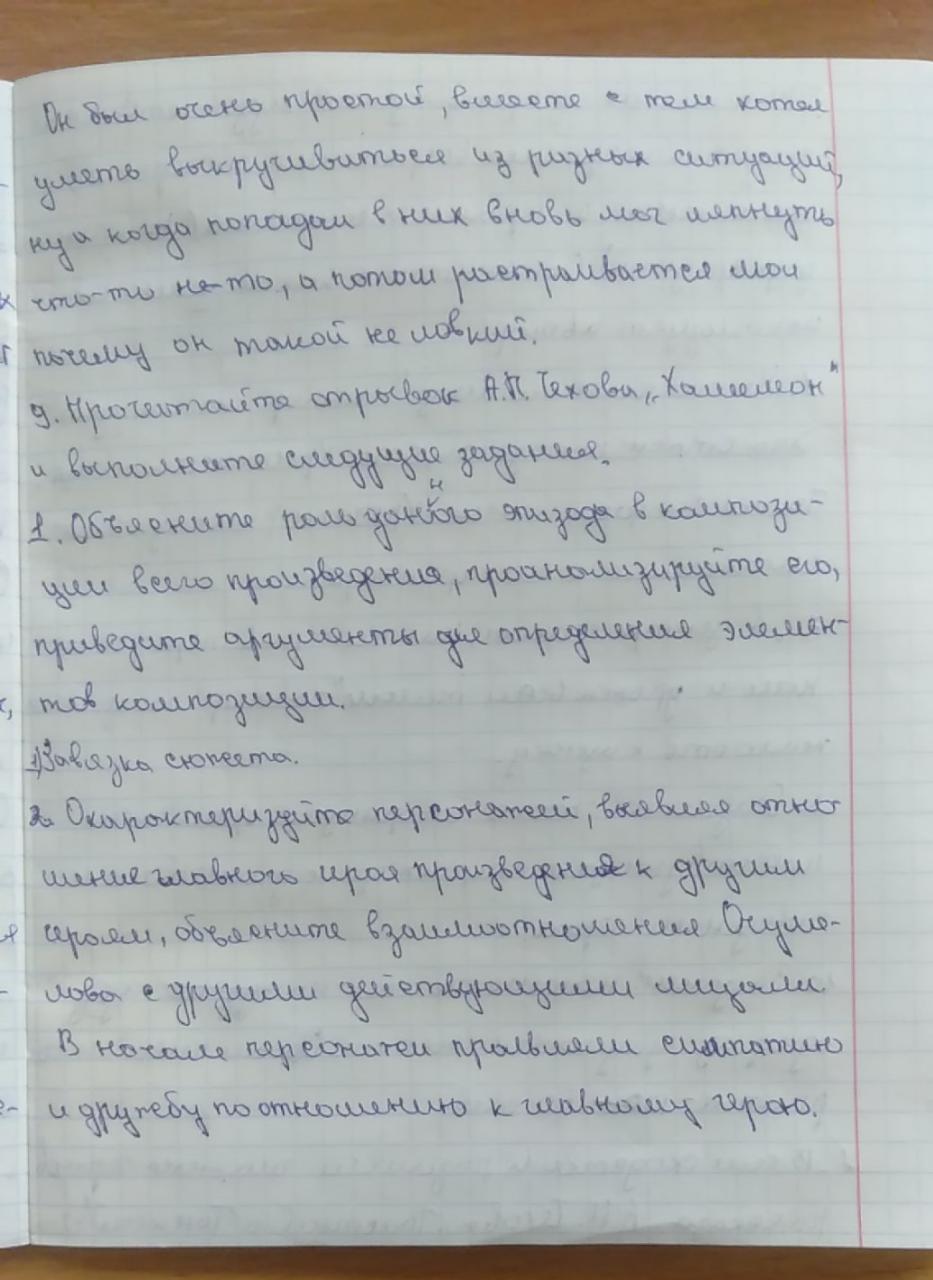 Он был очень простой, вместе с тем хотел
уметь выкручиваться из разных ситуаций,
ну а когда попадал в них вновь мог ляпнуть
что-то не-то, а потом растраивается мол
почему он такой не ловкий.
9. Прочитайте отрывок А.П. Чехова „Хамелеон"
и выполните следущие задания.
1. Объясните роль данного эпизода в компози-
ции всего произведения, проанализируйте его,
приведите аргументы для определения элемен-
тов композиции.
1) Завязка сюжета.
2. Охарактеризуйте персонажей, выявляя отно-
шение главного героя произведения к другим
героям, объясните взаимоотношения Очуме-
лова с другими действующими лицами.
В начале персонажи проявляли симпатию
и дружбу по отношению к главному герою.